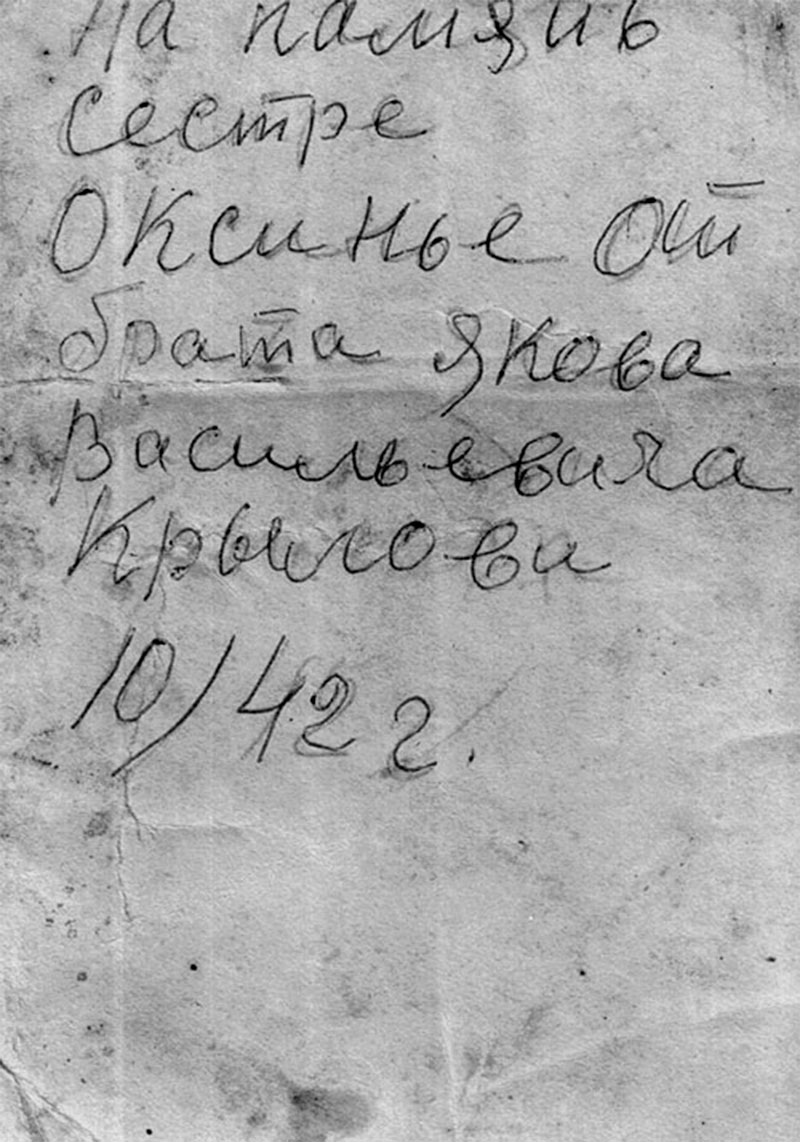 На память
сестре
Оксинье от
брата Якова
Васильевича
Крылова
10/42 г.